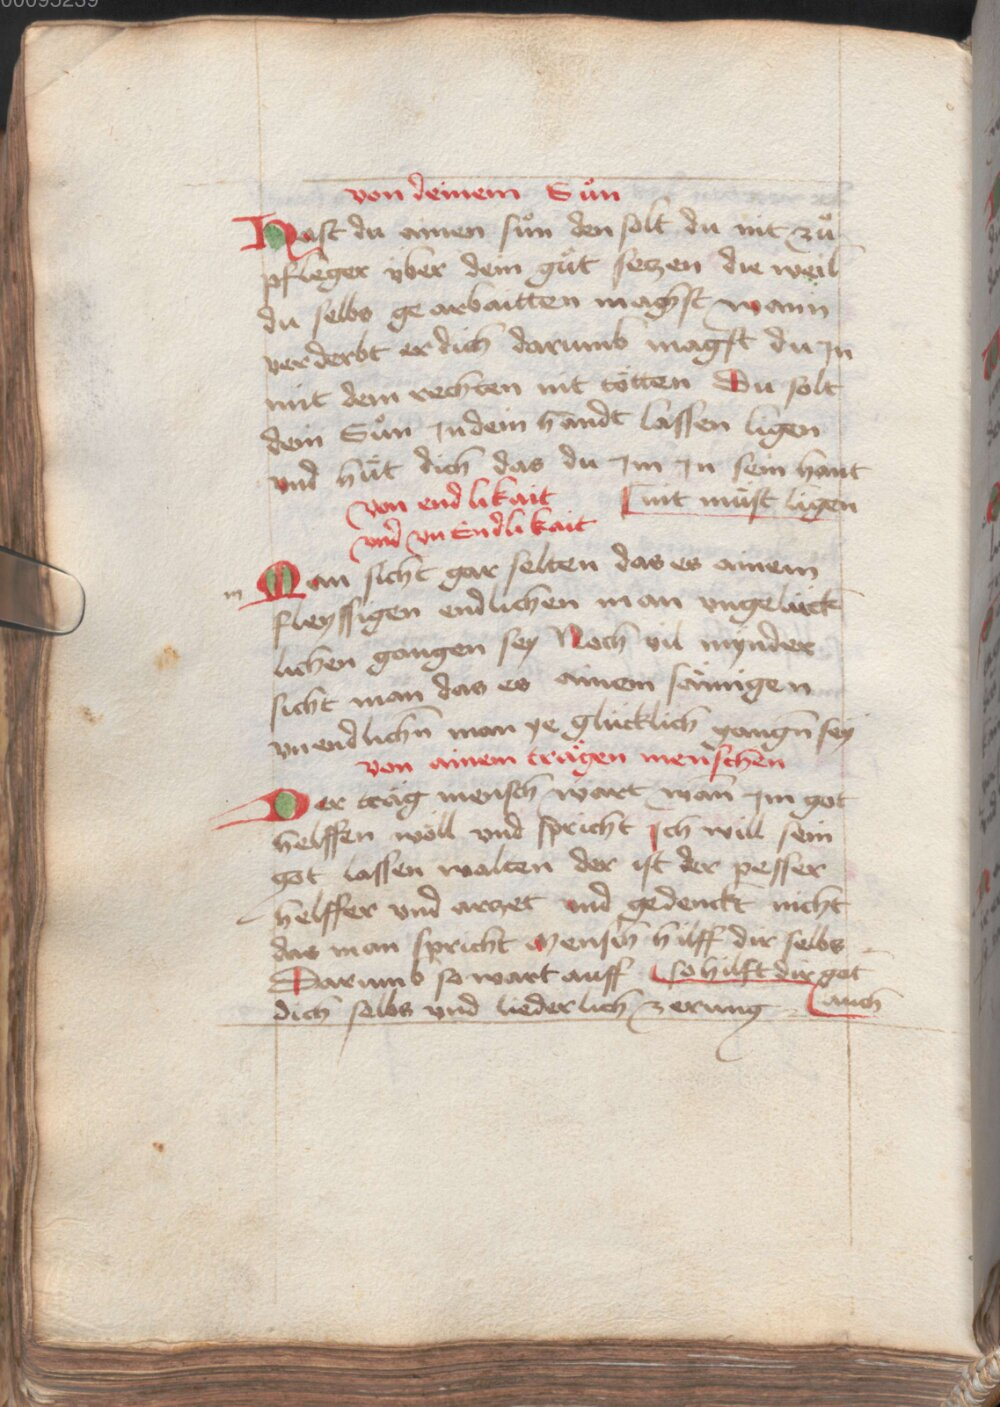 00095239
von deinem Sůn
Hast du ainen sůn den solt du nit zů
pfleger ÿber dein gůt setzen die weil
du selbs gearbaitten magst wann
verderbt er dich darumb magst du Jn
mit dem rechten nit tötten Du solt
dein Sůn Jn dein handt lassen ligen
vnd hüt dich das du Jm Jn sein hant
nit müst ligen
von endlikait
vnd vnEndlikait
m
Man sicht gar selten das es ainem
fleyssigen endlichen man vngelück
lichen gangen sey Noch vil mynder
sicht man das es ainem säwigen
vnendlichn̄ man ye glücklich gangn̄ sey
von ainem trägen menschen
Der träg mensch wart wan̄ Jm got
helffen wöll vnd spricht Jch will sein
got lassen walten der ist der pesser
helffer vnd artzet vnd gedenckt nicht
das man spricht Mensch hilff dir selbs
so hilft dir got
auch
Darumb so wart auff
dich selbs vnd liederlich zerung